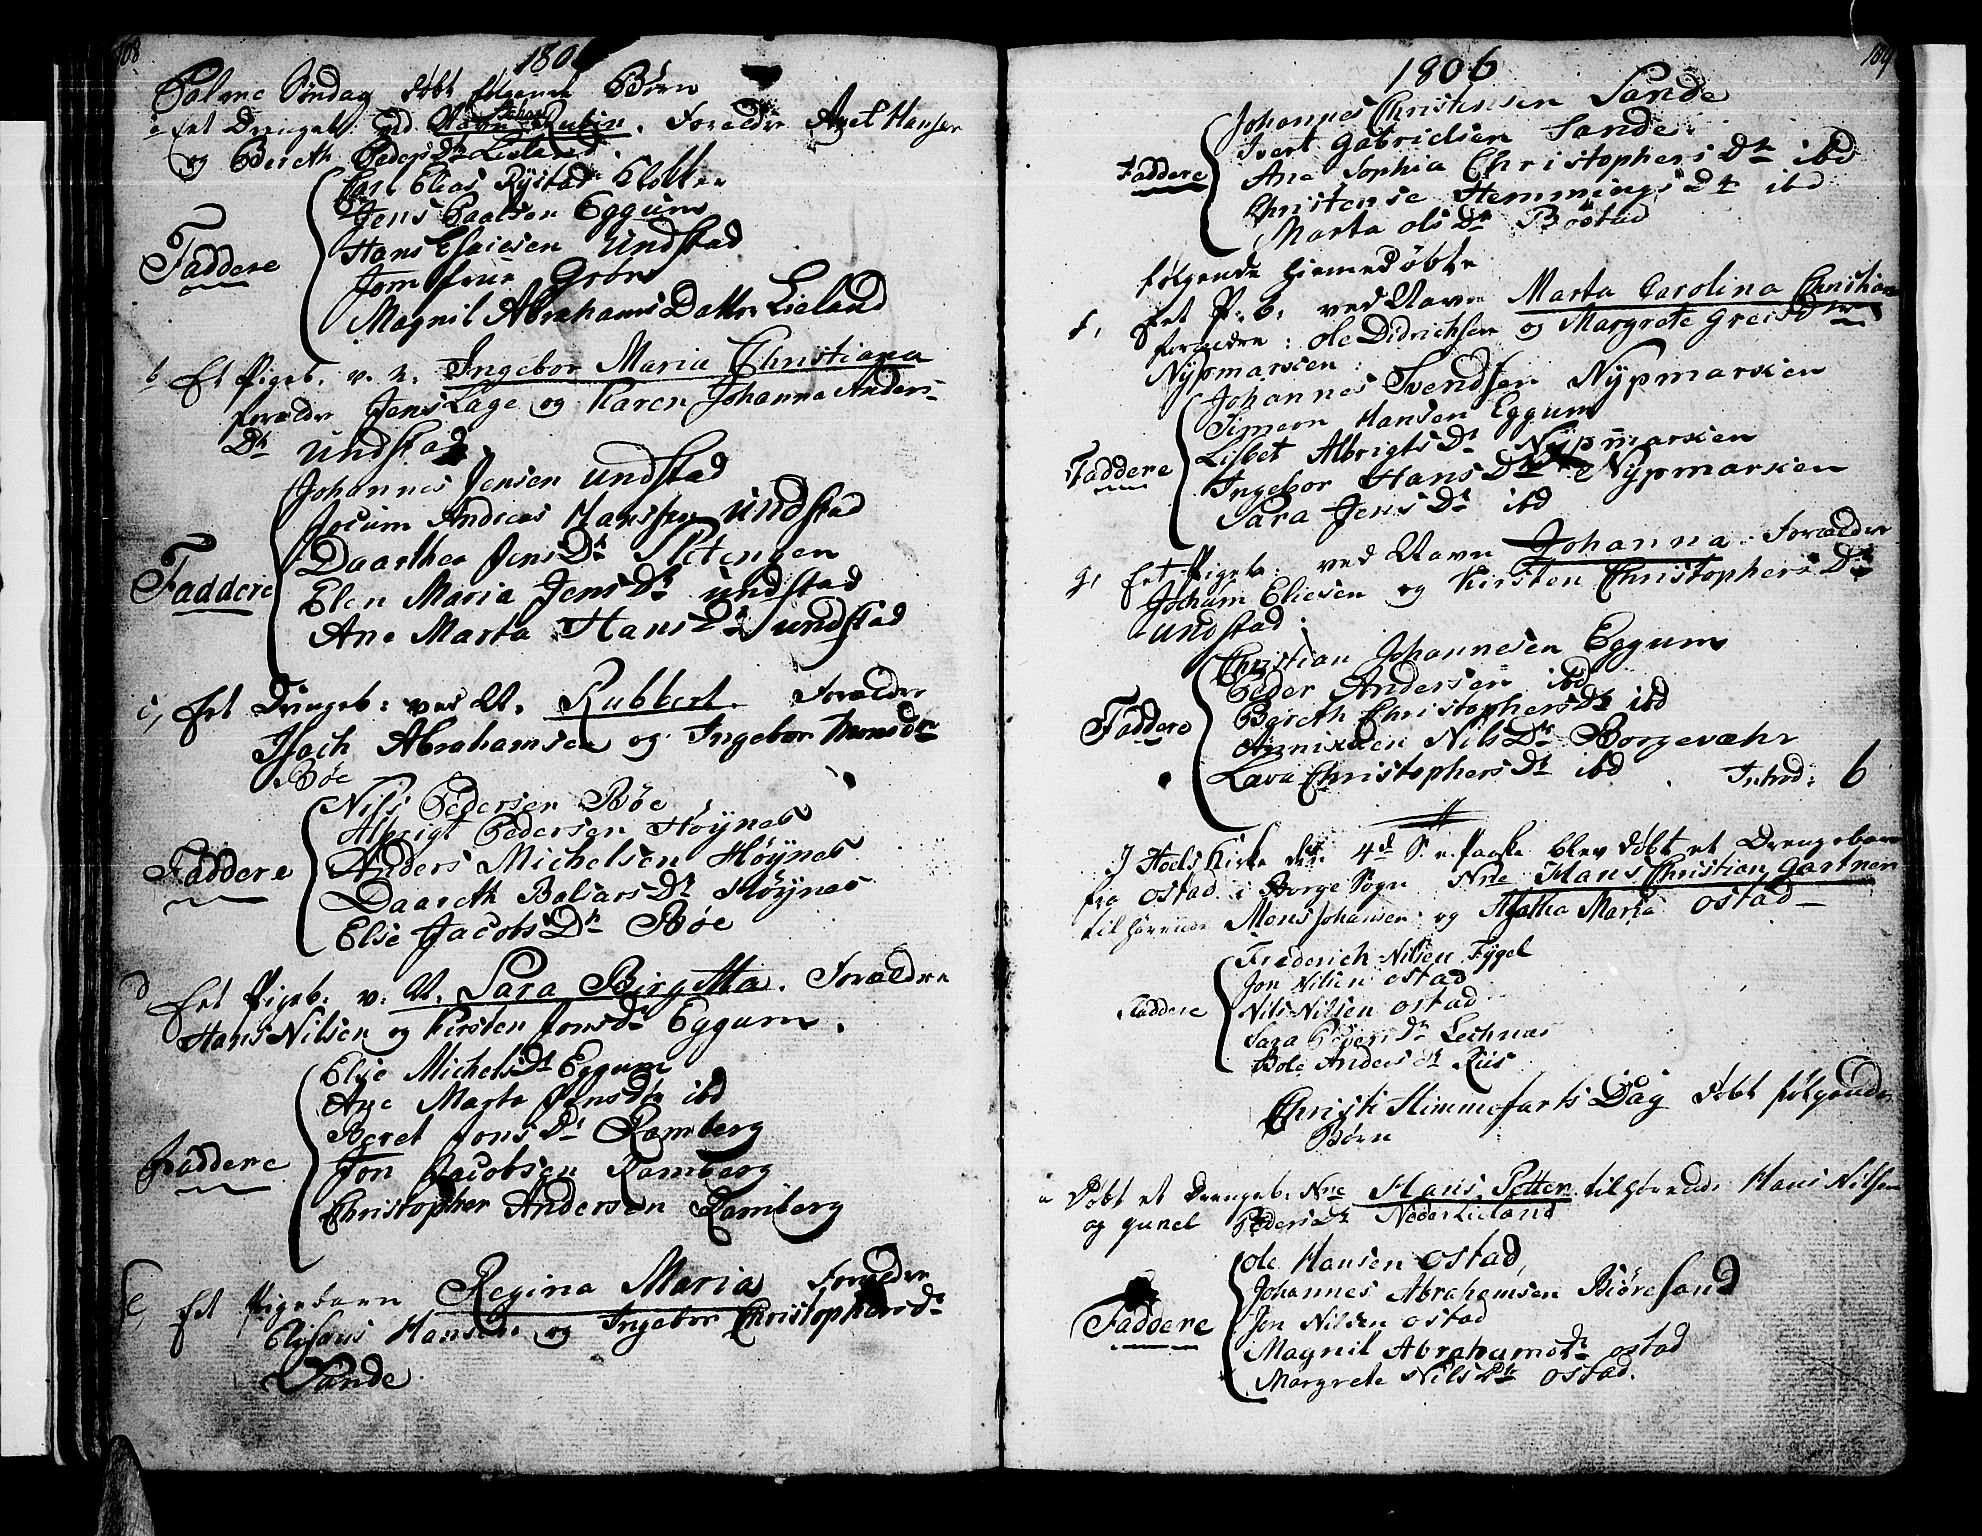 108
180
Palme Søndag døbt følgende Børn
a Et Drengeb. ved Navn Rubin. Forældre Axel Hansen
og Bereth Peders Dr Lieland.
Elias Rystad Klokker
Jens Paulsen Eggum
Hans Esaiesen Undstad
Jomfrue Grøn
Magnil Abrahams Datter Lieland
Faddere
b Et Pigeb. v. N. Ingebor Maria Christiana
forældre Jens Lage og Karen Johanna Anders-
Dr Undstad
Johannes Jensen Undstad
Jocum Andreas Hanssen Undstad
Daarthea Jens Dr Petengen
Elen Maria Jens Dr Undstad
Ane Marta Hans Dr Undstad
Faddere
c, Et Drengeb: ved N. Rubbert. Forældre
Isach Abrahamsen og Ingebor Mons dr
Bøe
Nils Pedersen Bøe
Albrigt Pedersen Høynes
Anders Michelsen Høynes
Daareth Balsars Dr Høynes
Elie Jacobs Dr Bøe
Faddere
d Et Pigeb. v. N. Sara Birgitta. Forældre
Hans Nilsen og Kirsten Jons dr Eggum.
Elie Michels Dr Eggum
Ane Marta Jens dr ibd
Beret Jons Dr Ramberg
Jon Jacobsen Ramberg
Christopher Andersen Ramberg
Faddere
e, Et Pigebarn Regina Maria Forældre
Elisæus Hansen og Ingebor Christophers Dr
Sande
109
1806
Johannes Christensen Sande
Ivert Gabrielsen Sande
Ane Sophia Christophers Dr ibd
Christense Hemmings Dr ibd
Marta Ols Dr Bøstad
Faddere
følgende hiemedøbte
f, Et P. b. ved Navn Marta Carolina Christian
forældre: Ole Didrichsen og Margrete Greis Dr
Nypmarken
Johannes Svendsen Nypmarken
Simeon Hansen Eggum
Lisbet Albrigts Dr Nypmarken
Ingebor Hans Dr Nypmarken
Sara Jens Dr ibd
Faddere
g, Et Pigeb: ved Navn Johanna. Forældre
Jocham Eliesen og Kirsten Christophers Dr
Undstad.
Christian Johannesen Eggum
Peder Andersen ibd
Bereth Christophers Dr ibd
Annichen Nils Dr Borgevæhr
Lava Christophers Dr ibd . Introd: 6
Faddere
I Hols Kirke den 4d S. e. Paaske blev døbt et Drengebarn
fra Ostad i Borge Sogn Nne Hans Christian Gartner
tilhørende Mons Johansen og Agatha Maria Ostad-
Frederich Nilsen Fygel
Jon Nilsen Ostad
Nils Nilsen Ostad
Sara Peders Dr Lechnes
Bole Anders dr Riis
Faddere
Christi Himmefarts Dag døbt følgende
Børn
a Døbt et Drengeb. Nne Hans Petter tilhørende Hans Nilsen
og Gunel Peders Dr Neder Lieland
Ole Hansen Ostad,
Johannes Abrahamsen Biøresand
Jon Nilsen Ostad
Magnil Abrahams Dr Ostad
Margrete Nils Dr Ostad.
Faddere